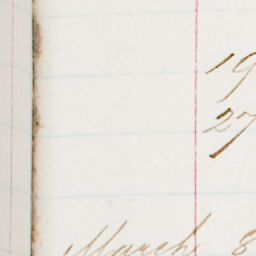 19
27
March 8